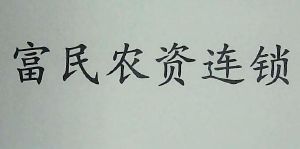 富民农资连锁